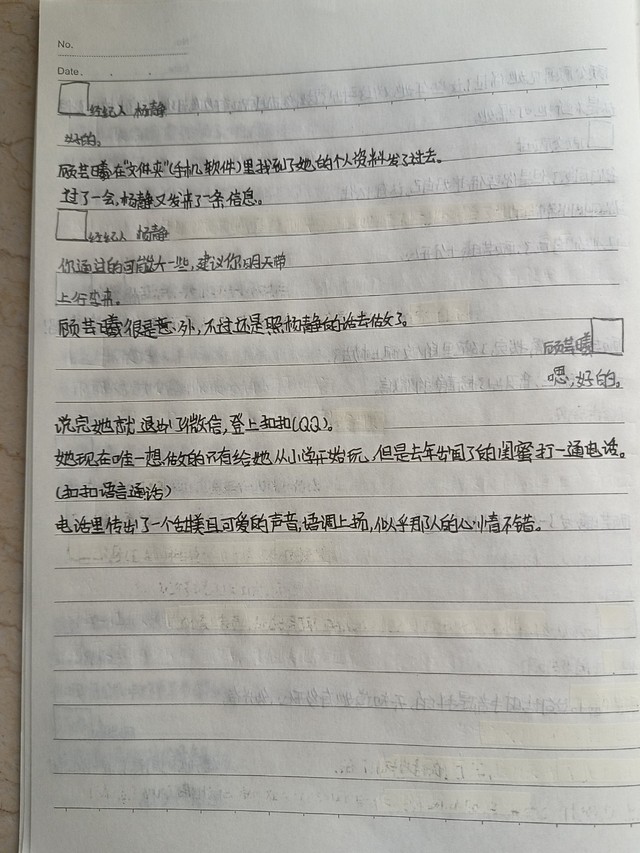 No.
Date.
经纪人 杨静
好的。
顾芸曦在"文件夹"(手机软件)里找到了她的个人资料发了过去。
过了一会,杨静又发来了一条信息。
经纪人 杨静
你通过的可能大一些,建议你明天带
上行李来。
顾芸曦很是意外,不过还是照杨静的话去做了。
顾芸曦
嗯,好的。
说完她就退出了微信,登上扣扣(QQ)。
她现在唯一想做的只有给她从小学开始玩,但是去年出国了的闺蜜打一通电话。
(扣扣语言通话)
电话里传出了一个甜美且可爱的声音,语调上扬,似乎那人的心情不错。